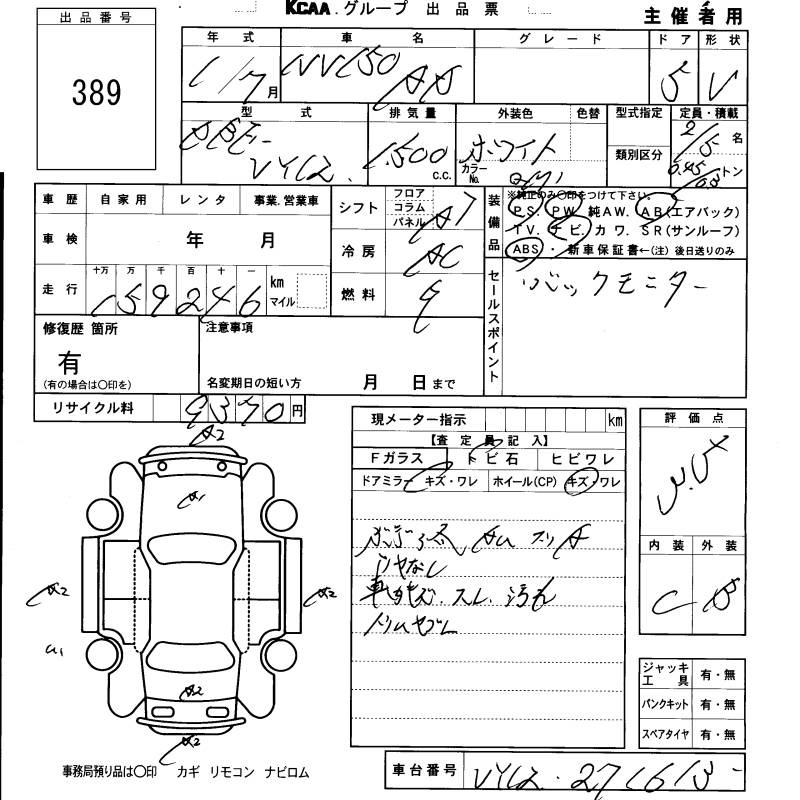 KCAA.グループ 出品票
主催者用
出品番号
389
年式 車名 グレード ドア 形状
1/7月 NV150 AD 5 V
型式 排気量 外装色 色替 型式指定 定員・積載
DBF-VY12 1,500 c.c. ホワイト カラーNo. 類別区分 2/5名
トン
車歴 自家用 レンタ 事業.営業車
シフト フロア コラム パネル AT
装備品 ※純正のみ○印をつけて下さい。
P.S. PW 純AW. AB(エアバック)
TV. ナビ. カワ. SR(サンルーフ)
ABS・新車保証書←(注)後日送りのみ
車検 年 月
冷房 AC
走行 十万 万 千 百 十 一 km マイル
159246
燃料
セールスポイント
バックモニター
修復歴 箇所
有
(有の場合は○印を)
注意事項
名変期日の短い方 月 日まで
リサイクル料 9370円
現メーター指示 km
【査定員記入】
Fガラス トビ石 ヒビワレ
ドアミラー キズ・ワレ ホイール(CP) キズ・ワレ
評価点
A2
A1
A2
A2
U1
A2
A2
内装 外装
C B
ジャッキ工具 有・無
パンクキット 有・無
スペアタイヤ 有・無
事務局預り品は○印 カギ リモコン ナビロム
車台番号 VY12-271613